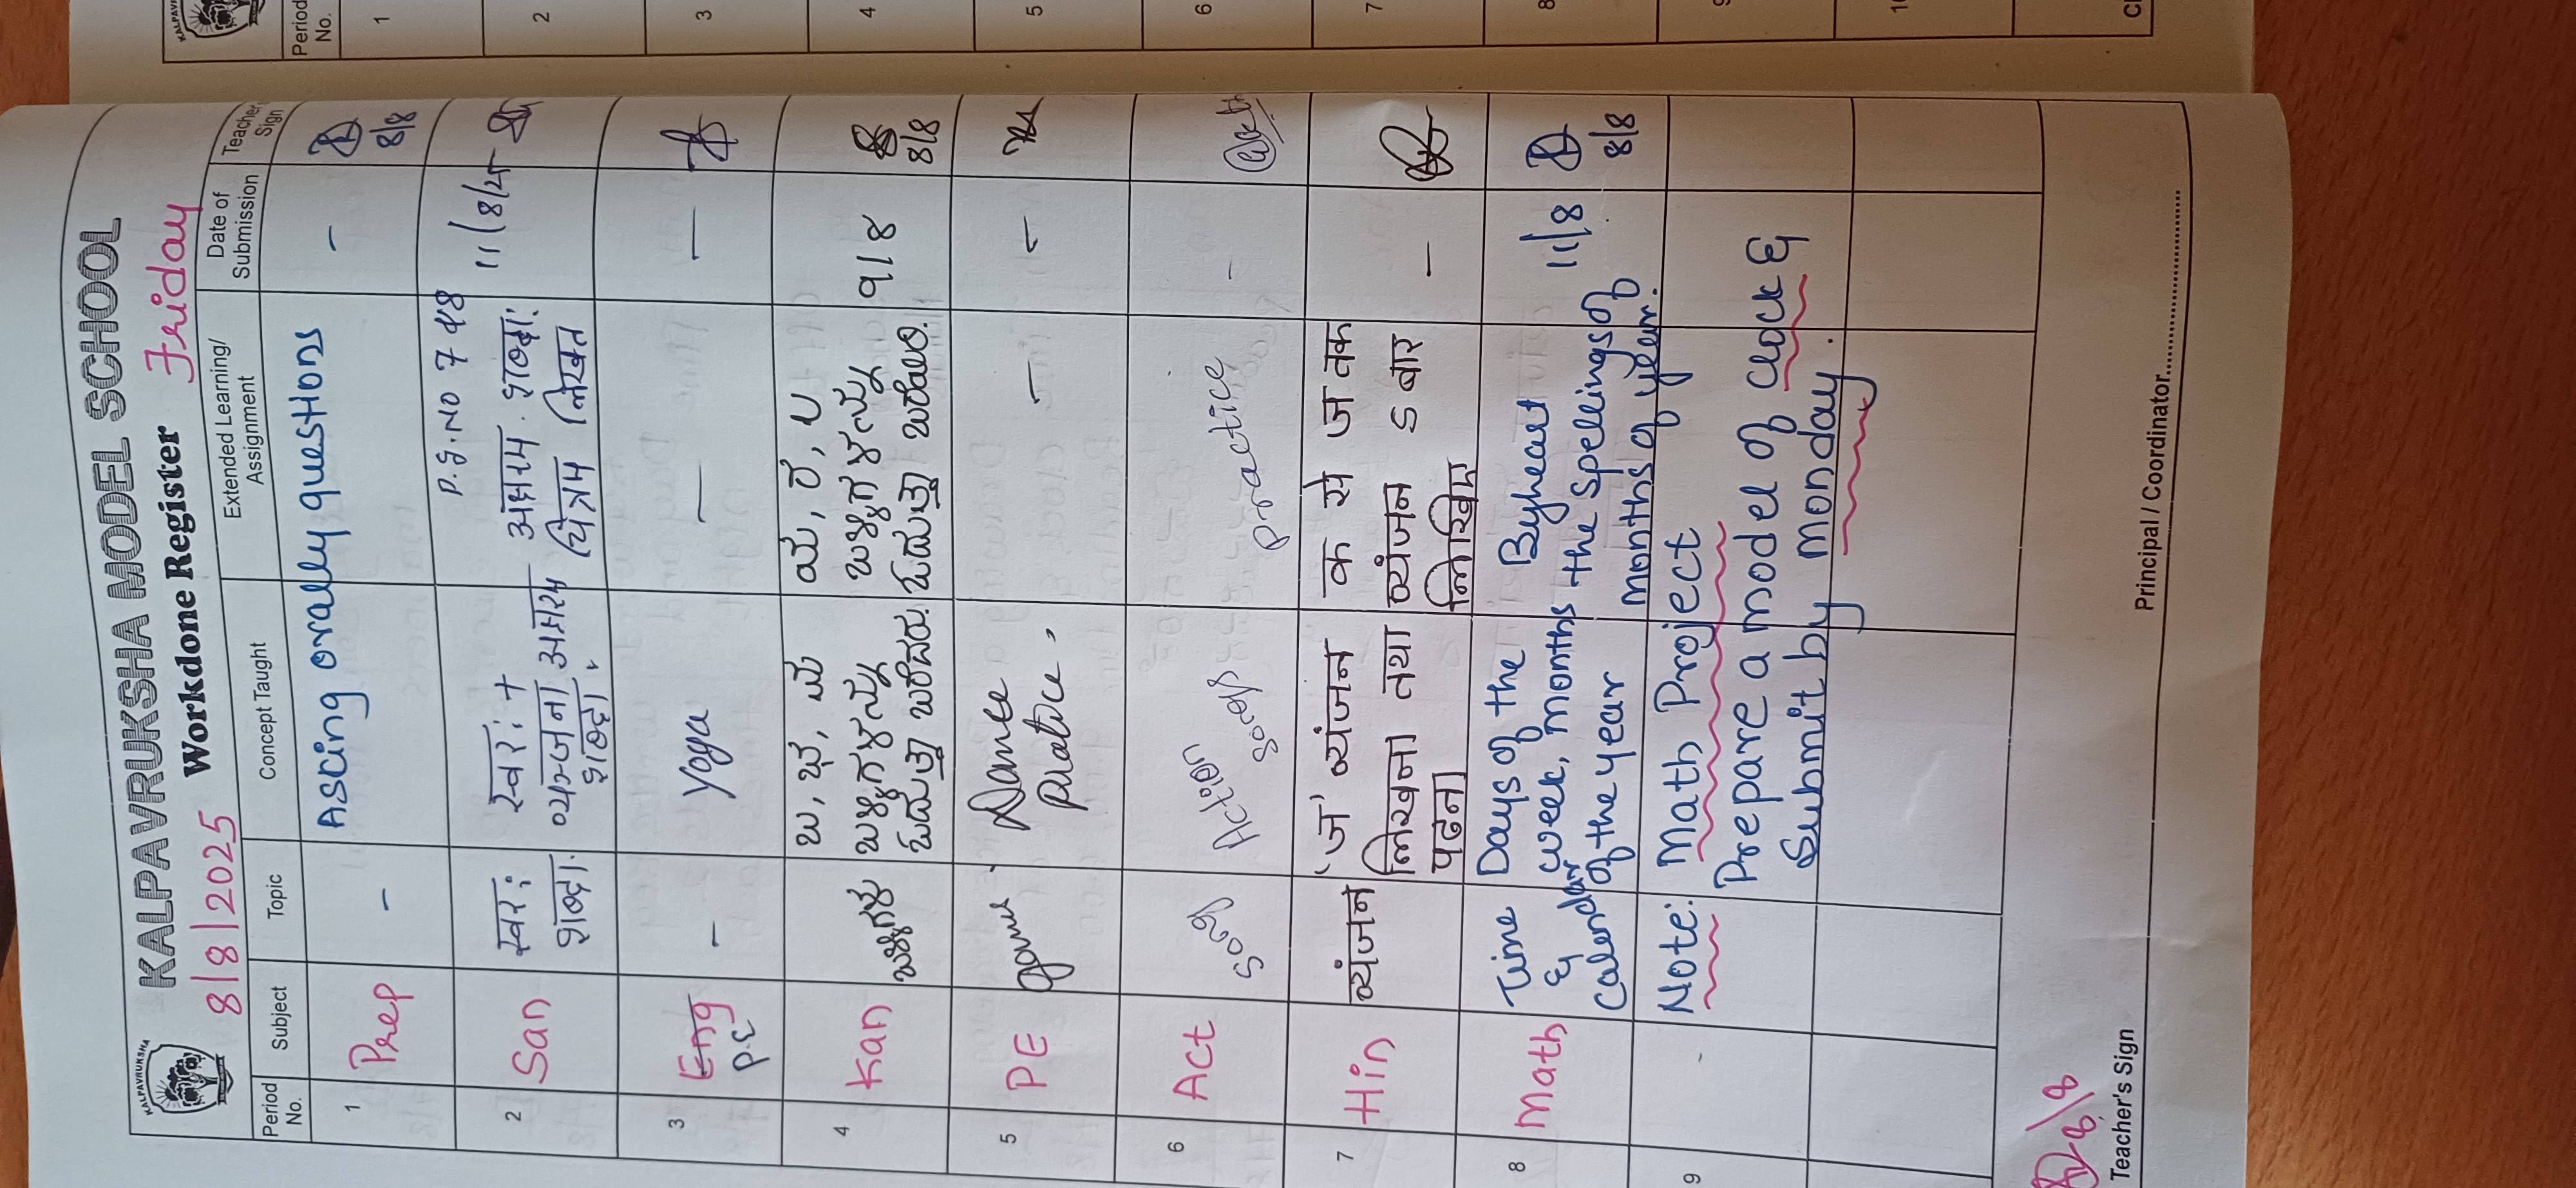 KALPAVRUKSHA
KALPAVRUKSHA MODEL SCHOOL
8/8/2025 Workdone Register Friday
Period No. Subject Topic Concept Taught Extended Learning/ Assignment Date of Submission Teacher Sign
1 Prep - Ascing orally questions - 8/8
P.g.NO 7 व 8
2 San स्वर: स्वर: + अक्षरम . शब्दा: 11/8/25
शब्दा. व्यन्जना अक्षरम चित्रम लिखत
शब्दा.
3 Eng - Yoga — —
P.E
4 Kan ಬಳ್ಳಿಗಳ ಬ, ಭ, ಮ ಯ, ರ, ಲ 9/8 8/8
ಬಳ್ಳಿಗಳನ್ನು ಬಳ್ಳಿಗಳನ್ನು
ಓದುತ್ತಾ ಬರೆಯಿರಿ. ಓದುತ್ತಾ ಬರೆಯಿರಿ.
5 PE game Dance —
Pratice
6 Act song Action songs practice -
7 Hin व्यंजन 'ज' व्यंजन क से ज तक —
लिखना तथा व्यंजन 5 बार
पढना लिखिए
8 Math Time Days of the Byheart 11/8 8/8
& week, months the spellings of
Calendar of the year months of year.
9 Note: Math Project
Prepare a model of clock &
Submit by monday.
8/8
Teacher's Sign Principal / Coordinator
Period No.
1
2
3
4
5
6
7
8